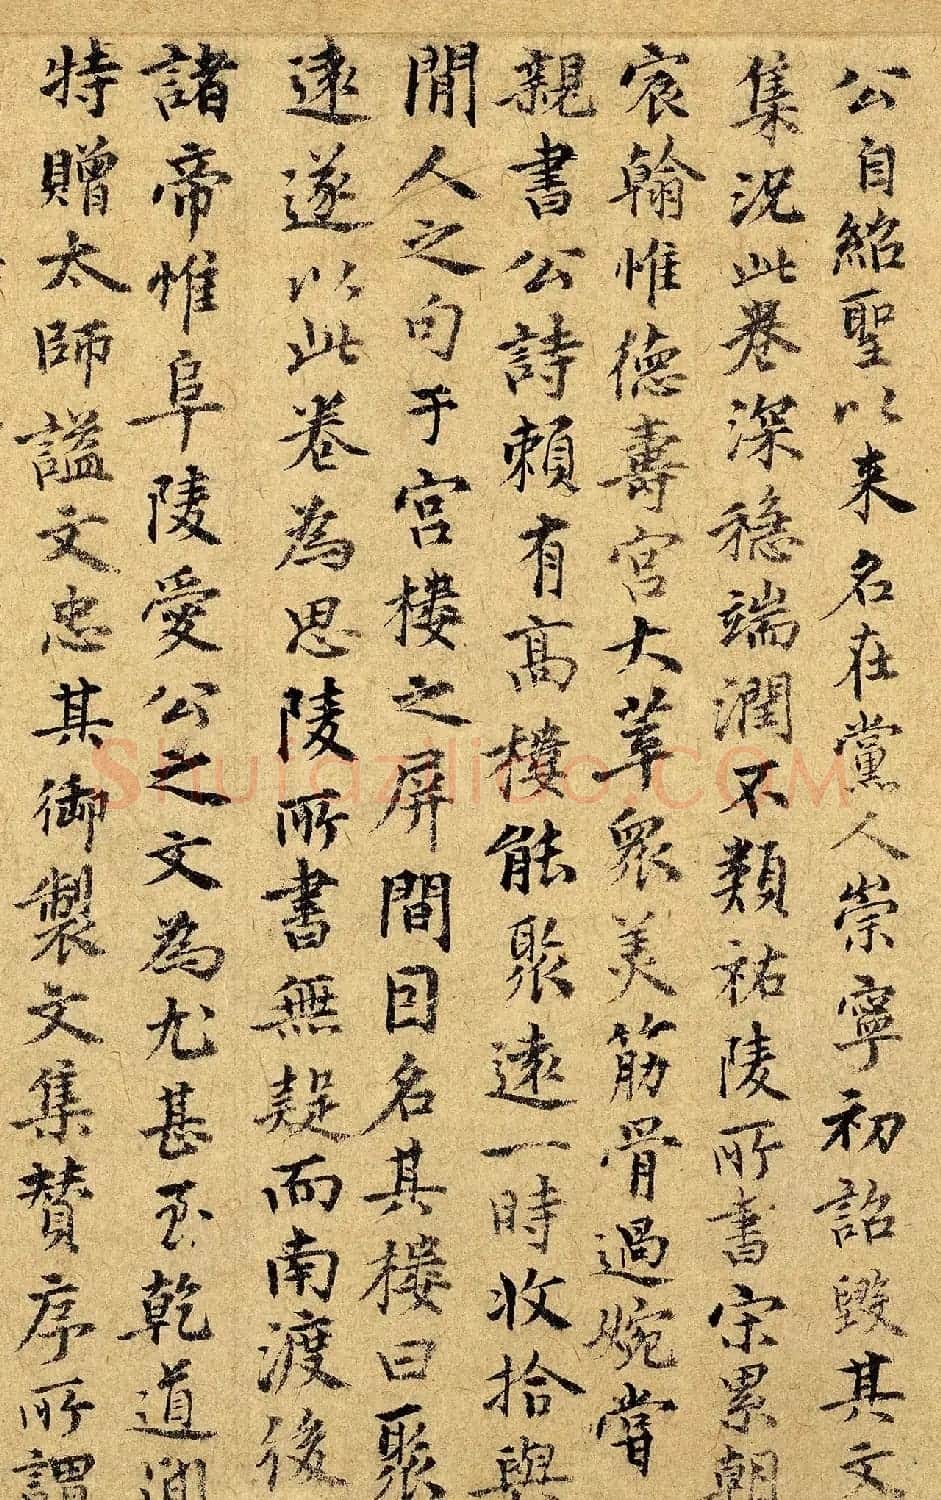 公自紹聖以来名在黨人崇寧初詔毀其文
集況此卷深穩端潤不類祐陵所書宗累朝
宸翰惟德壽宮大草眾美筋骨過婉嘗
親書公詩賴有高樓能聚遠一時收拾與
閒人之句于宮樓之屏間因名其樓曰聚
遠遂以此卷為思陵所書無疑而南渡後
諸帝惟阜陵愛公之文為尤甚至乾道間
特贈太師謚文忠其御製文集贊序所謂
Shufaziliao.COM